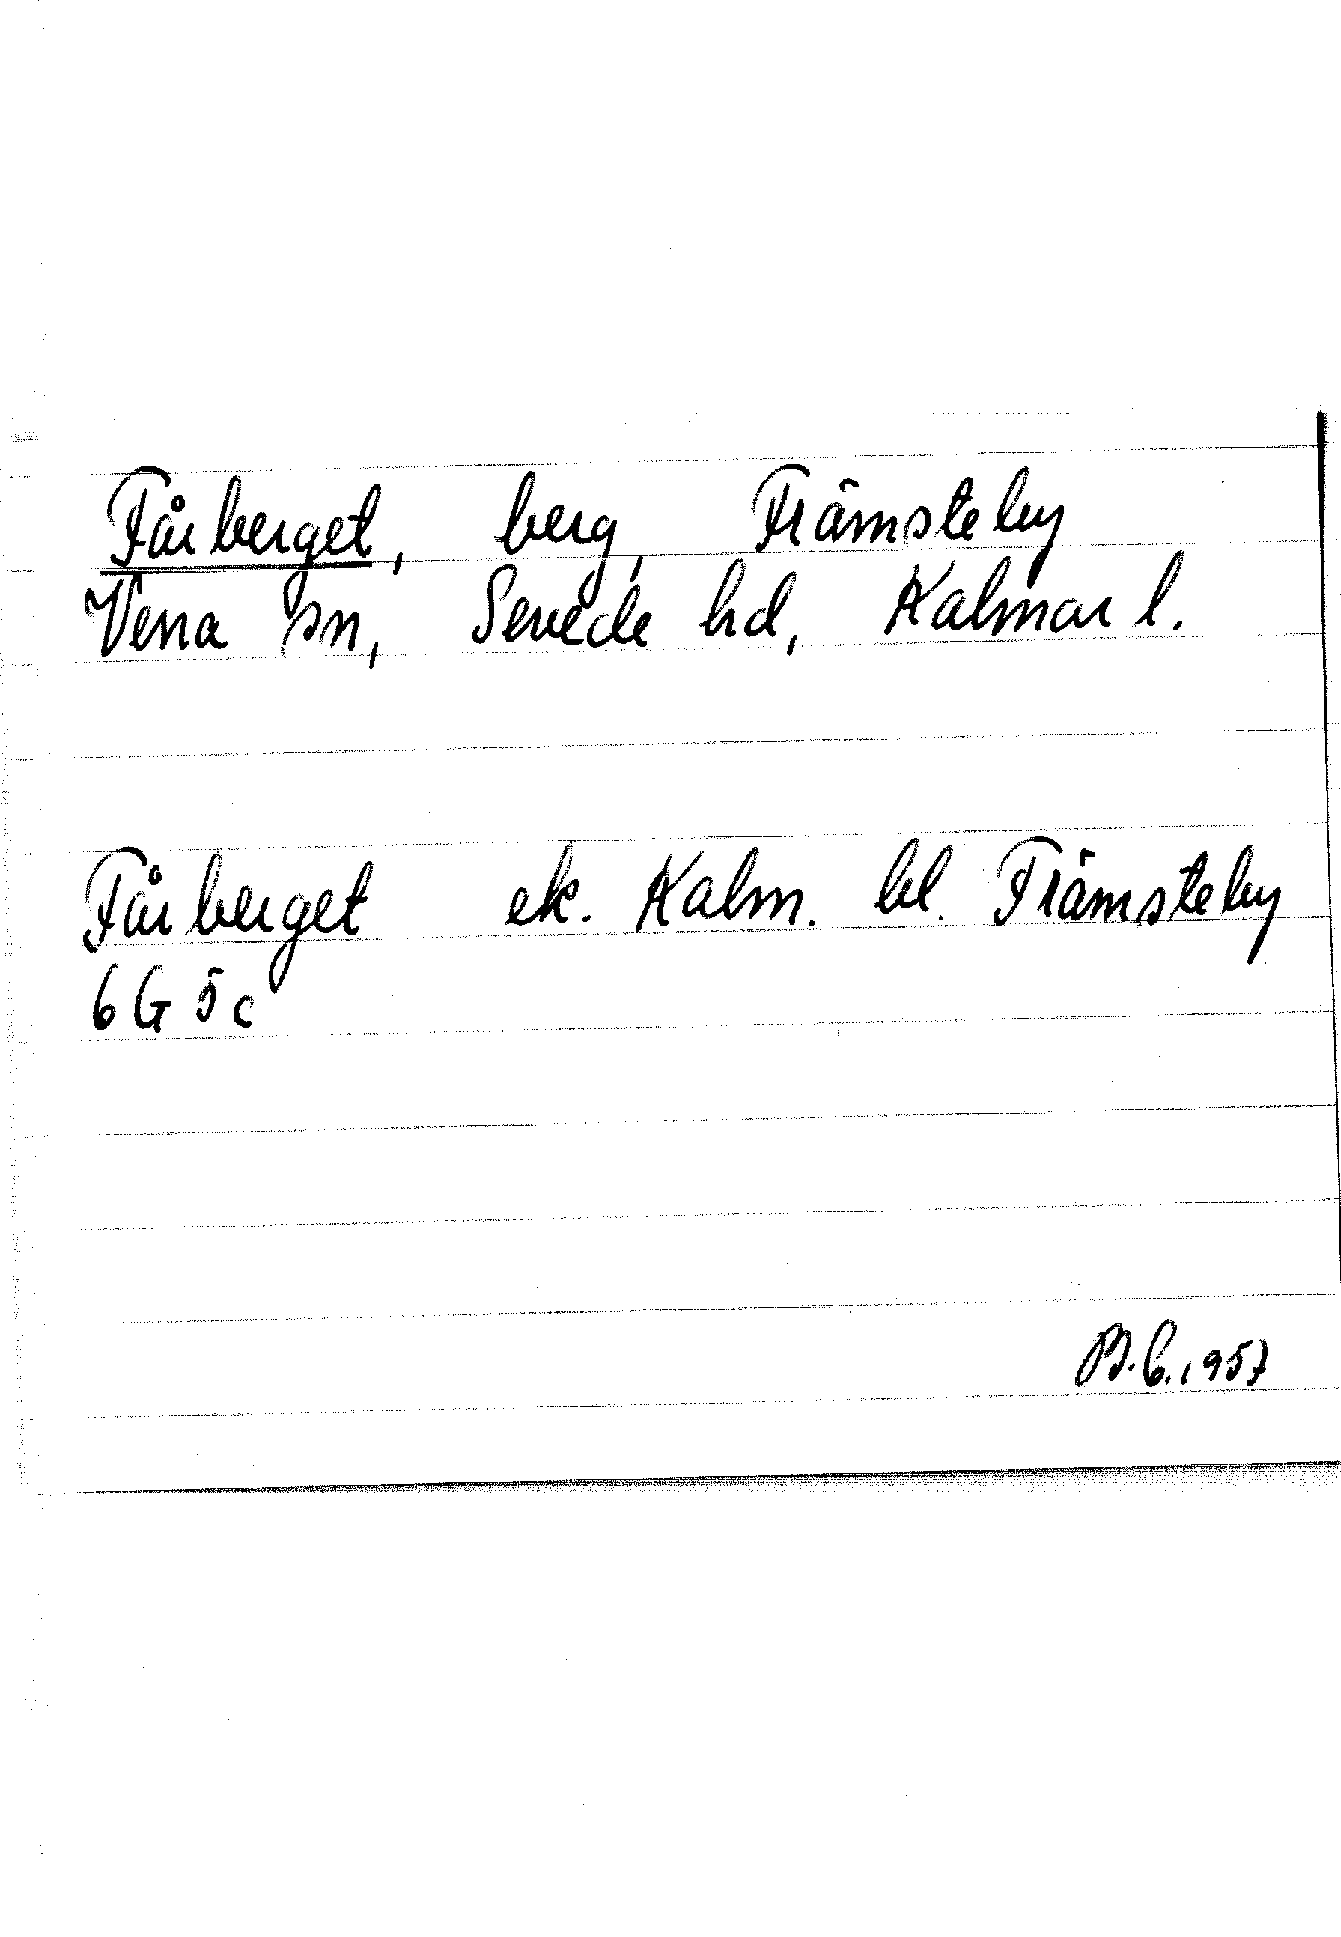 Fårberget, berg, Främsteby
Vena sn, Sevede hd, Kalmar l.
Fårberget ek. Kalm. bl. Främsteby
6G 5c
B.C. 1957